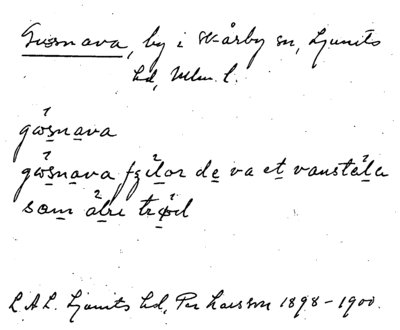 Gussnava, by i Skårby sn, Ljunits
hd, Mlm. l.
gɷsnava
gɷsnava fɟilor de va et vanstɛla
som aldri trød
L.A.L. Ljunits hd, Per Larsson 1898-1900.